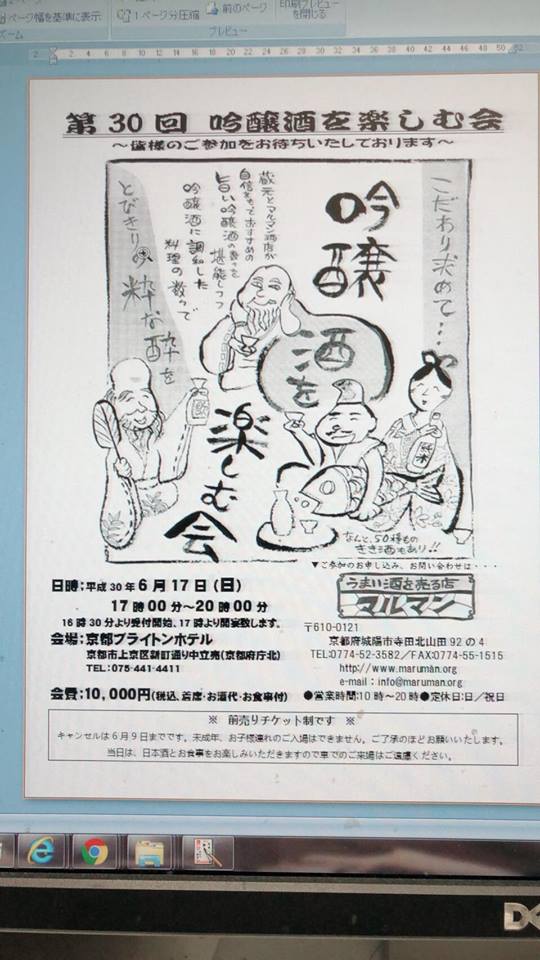 ページ幅を基準に表示
1 ページ分圧縮
前のページ
印刷プレビュー
を閉じる
ズーム
プレビュー
第30回 吟醸酒を楽しむ会
～皆様のご参加をお待ちいたしております～
こだわり求めて…
吟醸
酒を
楽しむ会
蔵元とマルマン酒店が
自信をもっておすすめの
旨い吟醸酒の数々を堪能しつつ
吟醸酒に調和した
料理の数々で
とびきりの粋な酔を
純米
なんと、50種もの
きき酒もあり!!
▼ご参加のお申し込み、お問い合わせは・・・
日時:平成30年6月17日(日)
17時00分～20時00分
16時30分より受付開始、17時より開宴致します。
会場:京都ブライトンホテル
京都市上京区新町通り中立売(京都府庁北)
TEL:075-441-4411
会費:10,000円(税込、斎席・お酒代・お食事付)
うまい酒を売る店
マルマン
〒610-0121
京都府城陽市寺田北山田92の4
TEL:0774-52-3582/FAX:0774-55-1515
http://www.maruman.org
e-mail:info@maruman.org
●営業時間:10時～20時●定休日:日/祝日
※ 前売りチケット制です ※
キャンセルは6月9日までです。未成年、お子様連れのご入場はできません。ご了承のほどお願いいたします。
当日は、日本酒とお食事をお楽しみいただきますので車でのご来場はご遠慮ください。